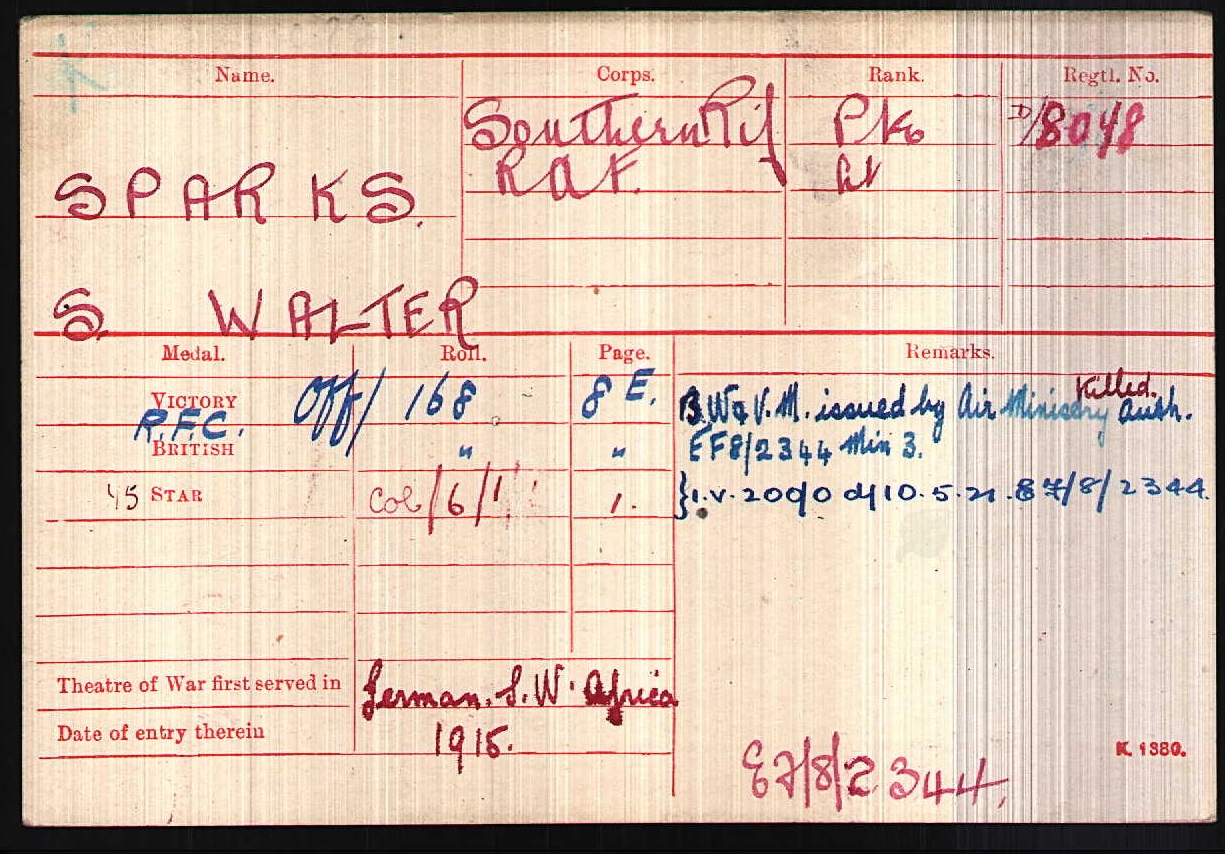 Name. Corps. Rank. Regtl. No.
Southern Rif Pte D/8048
R A F. Lt
SPARKS.
S. WALTER
Medal. Roll. Page. Remarks.
Killed.
VICTORY Off/168 8 E. B.W & V.M. issued by Air Ministry auth.
R.F.C.
BRITISH " " EF8/2344 Min 3.
15 STAR Col/6/1 1. }I.V. 2090 d/10.5.21 E7/8/2344.
Theatre of War first served in German. S.W. Africa
Date of entry therein 1915.
E7/8/2344.
K. 1380.